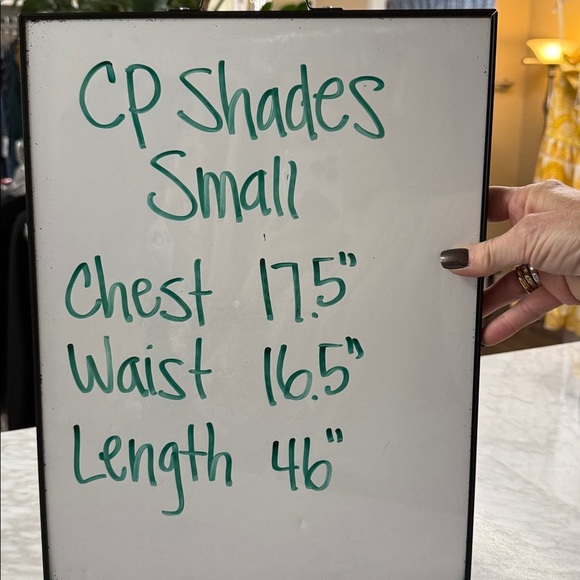 CP Shades
Small
Chest 17.5"
Waist 16.5"
Length 46"